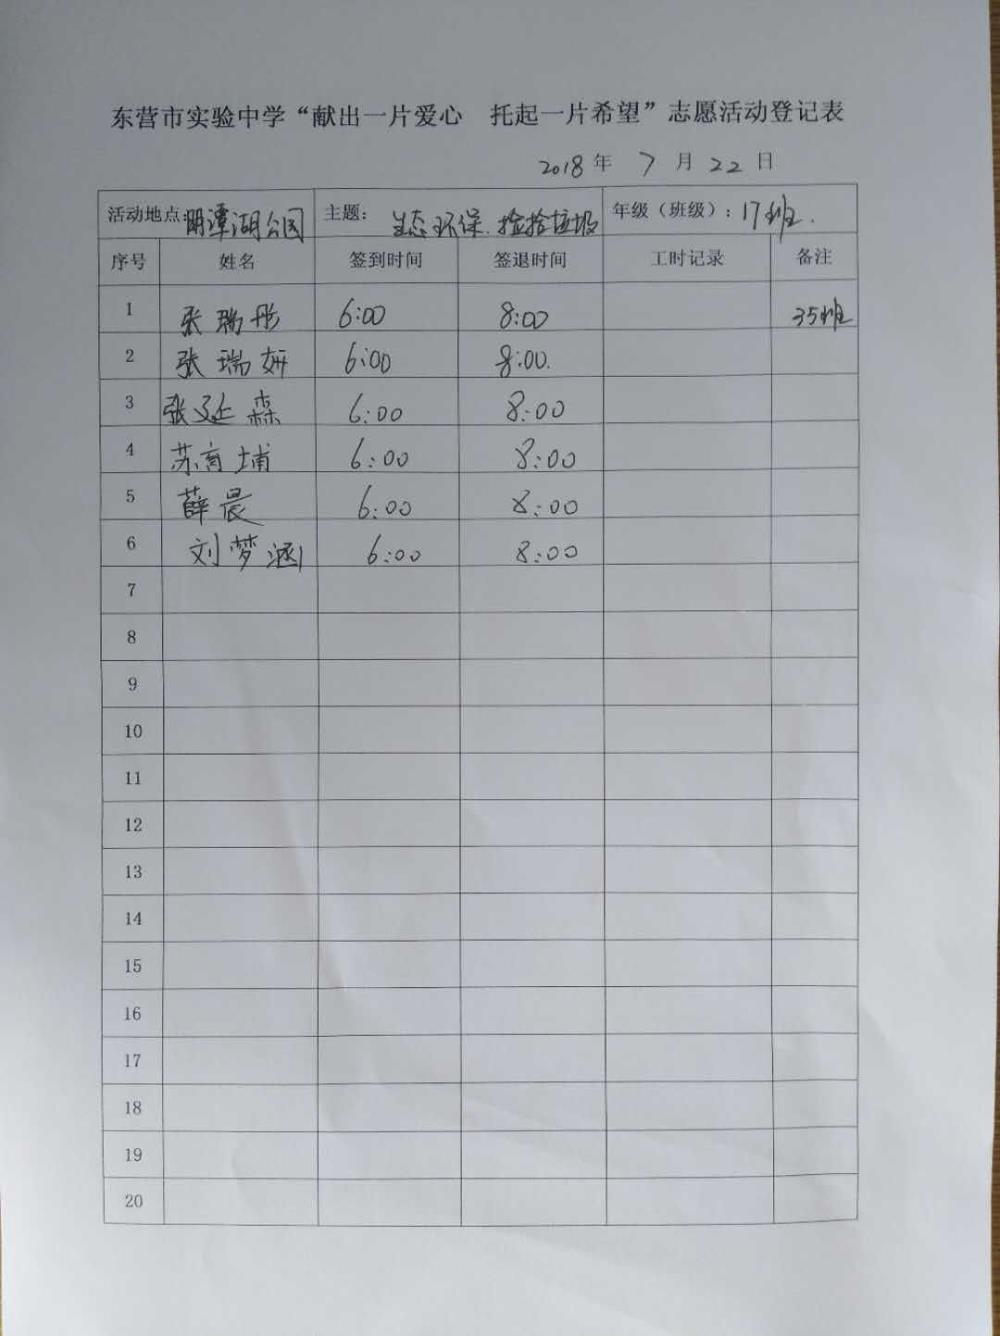 东营市实验中学“献出一片爱心 托起一片希望”志愿活动登记表
2018 年 7 月 22 日
活动地点:明潭湖公园 主题: 生态环保.捡拾垃圾 年级（班级）: 17班.
序号 姓名 签到时间 签退时间 工时记录 备注
1 张瑞彤 6:00 8:00 35班
2 张瑞妍 6:00 8:00.
3 张延森 6:00 8:00
4 苏商埔 6:00 8:00
5 薛晨 6:00 8:00
6 刘梦涵 6:00 8:00
7
8
9
10
11
12
13
14
15
16
17
18
19
20